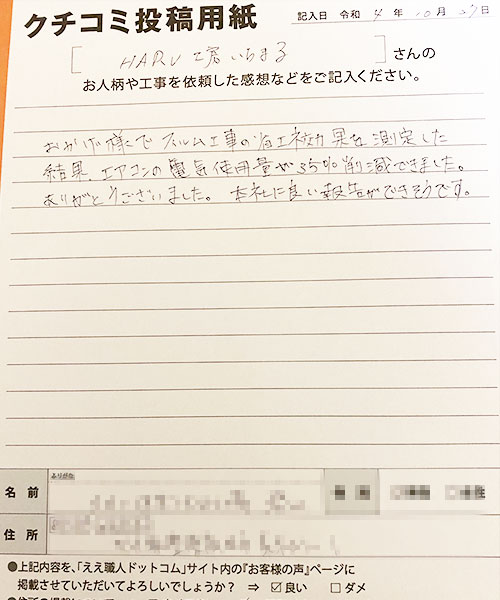 クチコミ投稿用紙
記入日 令和 4 年 10 月 27 日
[ HARU工房いちまる ] さんの
お人柄や工事を依頼した感想などをご記入ください。
おかげ様でフィルム工事の省エネ効果を測定した
結果、エアコンの電気使用量が35%削減できました。
ありがとうございました。本社に良い報告ができそうです。
ふりがな
名前
住所
●上記内容を、「ええ職人ドットコム」サイト内の『お客様の声』ページに
掲載させていただいてよろしいでしょうか? ⇒ ☑良い □ダメ